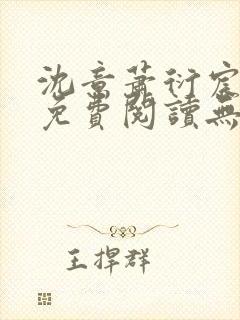 沈章蕭衍宸
免費閱讀無
王捍群